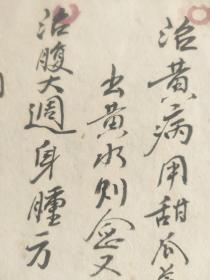 治黄病用甜瓜
出黄水则念又
治腹大週身腫方